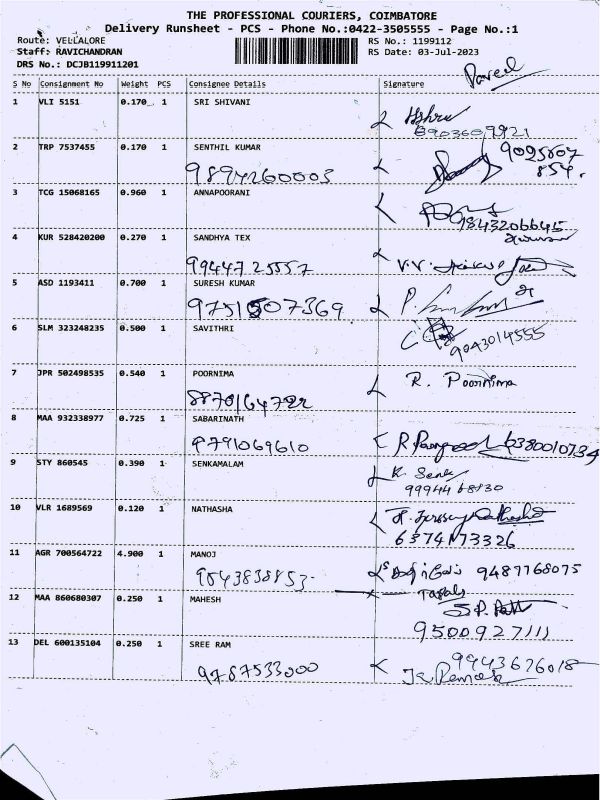 THE PROFESSIONAL COURIERS, COIMBATORE
Delivery Runsheet - PCS - Phone No.:0422-3505555 - Page No.:1
Route: VELLALORE
RS No.: 1199112
Staff: RAVICHANDRAN
RS Date: 03-Jul-2023
DRS No.: DCJB119911201
S No Consignment No Weight PCS Consignee Details Signature
1 VLI 5151 0.170 1 SRI SHIVANI
2 TRP 7537455 0.170 1 SENTHIL KUMAR
9894260003
9095807
854.
3 TCG 15068165 0.960 1 ANNAPOORANI
9843206645
4 KUR 528420200 0.270 1 SANDHYA TEX
99447 25557
V.V.
5 ASD 1193411 0.700 1 SURESH KUMAR
9751507369
P.
6 SLM 323248235 0.500 1 SAVITHRI
9043014555
7 JPR 502498535 0.540 1 POORNIMA
R. Poornima
8870164722
8 MAA 932338977 0.725 1 SABARINATH
9791069610
R 6380010734
9 STY 860545 0.390 1 SENKAMALAM
K. Senk
99944 68930
10 VLR 1689569 0.120 1 NATHASHA
6374173326
11 AGR 700564722 4.900 1 MANOJ
9487768075
9843838853
12 MAA 860680307 0.250 1 MAHESH
S.P.
9500927111
13 DEL 600135104 0.250 1 SREE RAM
9787533000
9943676018